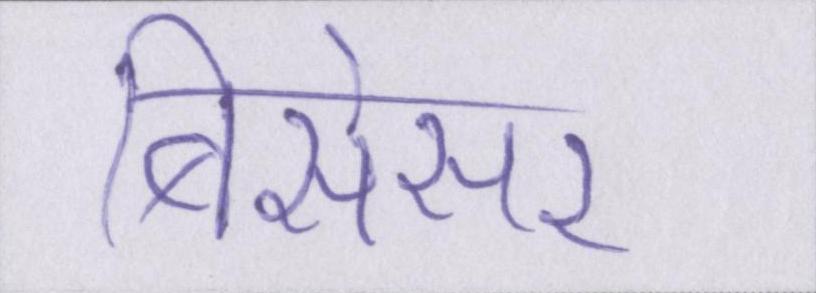 बिसेसर